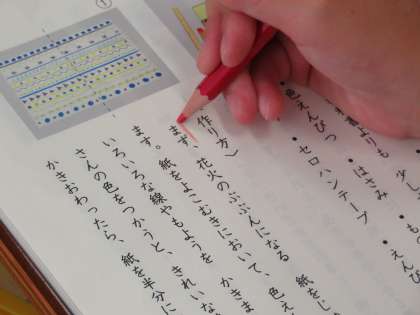 ・セロハンテープ
色えんぴつ
・はさみ
作り方〉
まず、花火のぶぶんになる紙をじ
ます。紙をよこむきにおいて、色え
いろいろな線やもようをかきま
さんの色をつかうと、きれいな
かきおわったら、紙を半分に
①